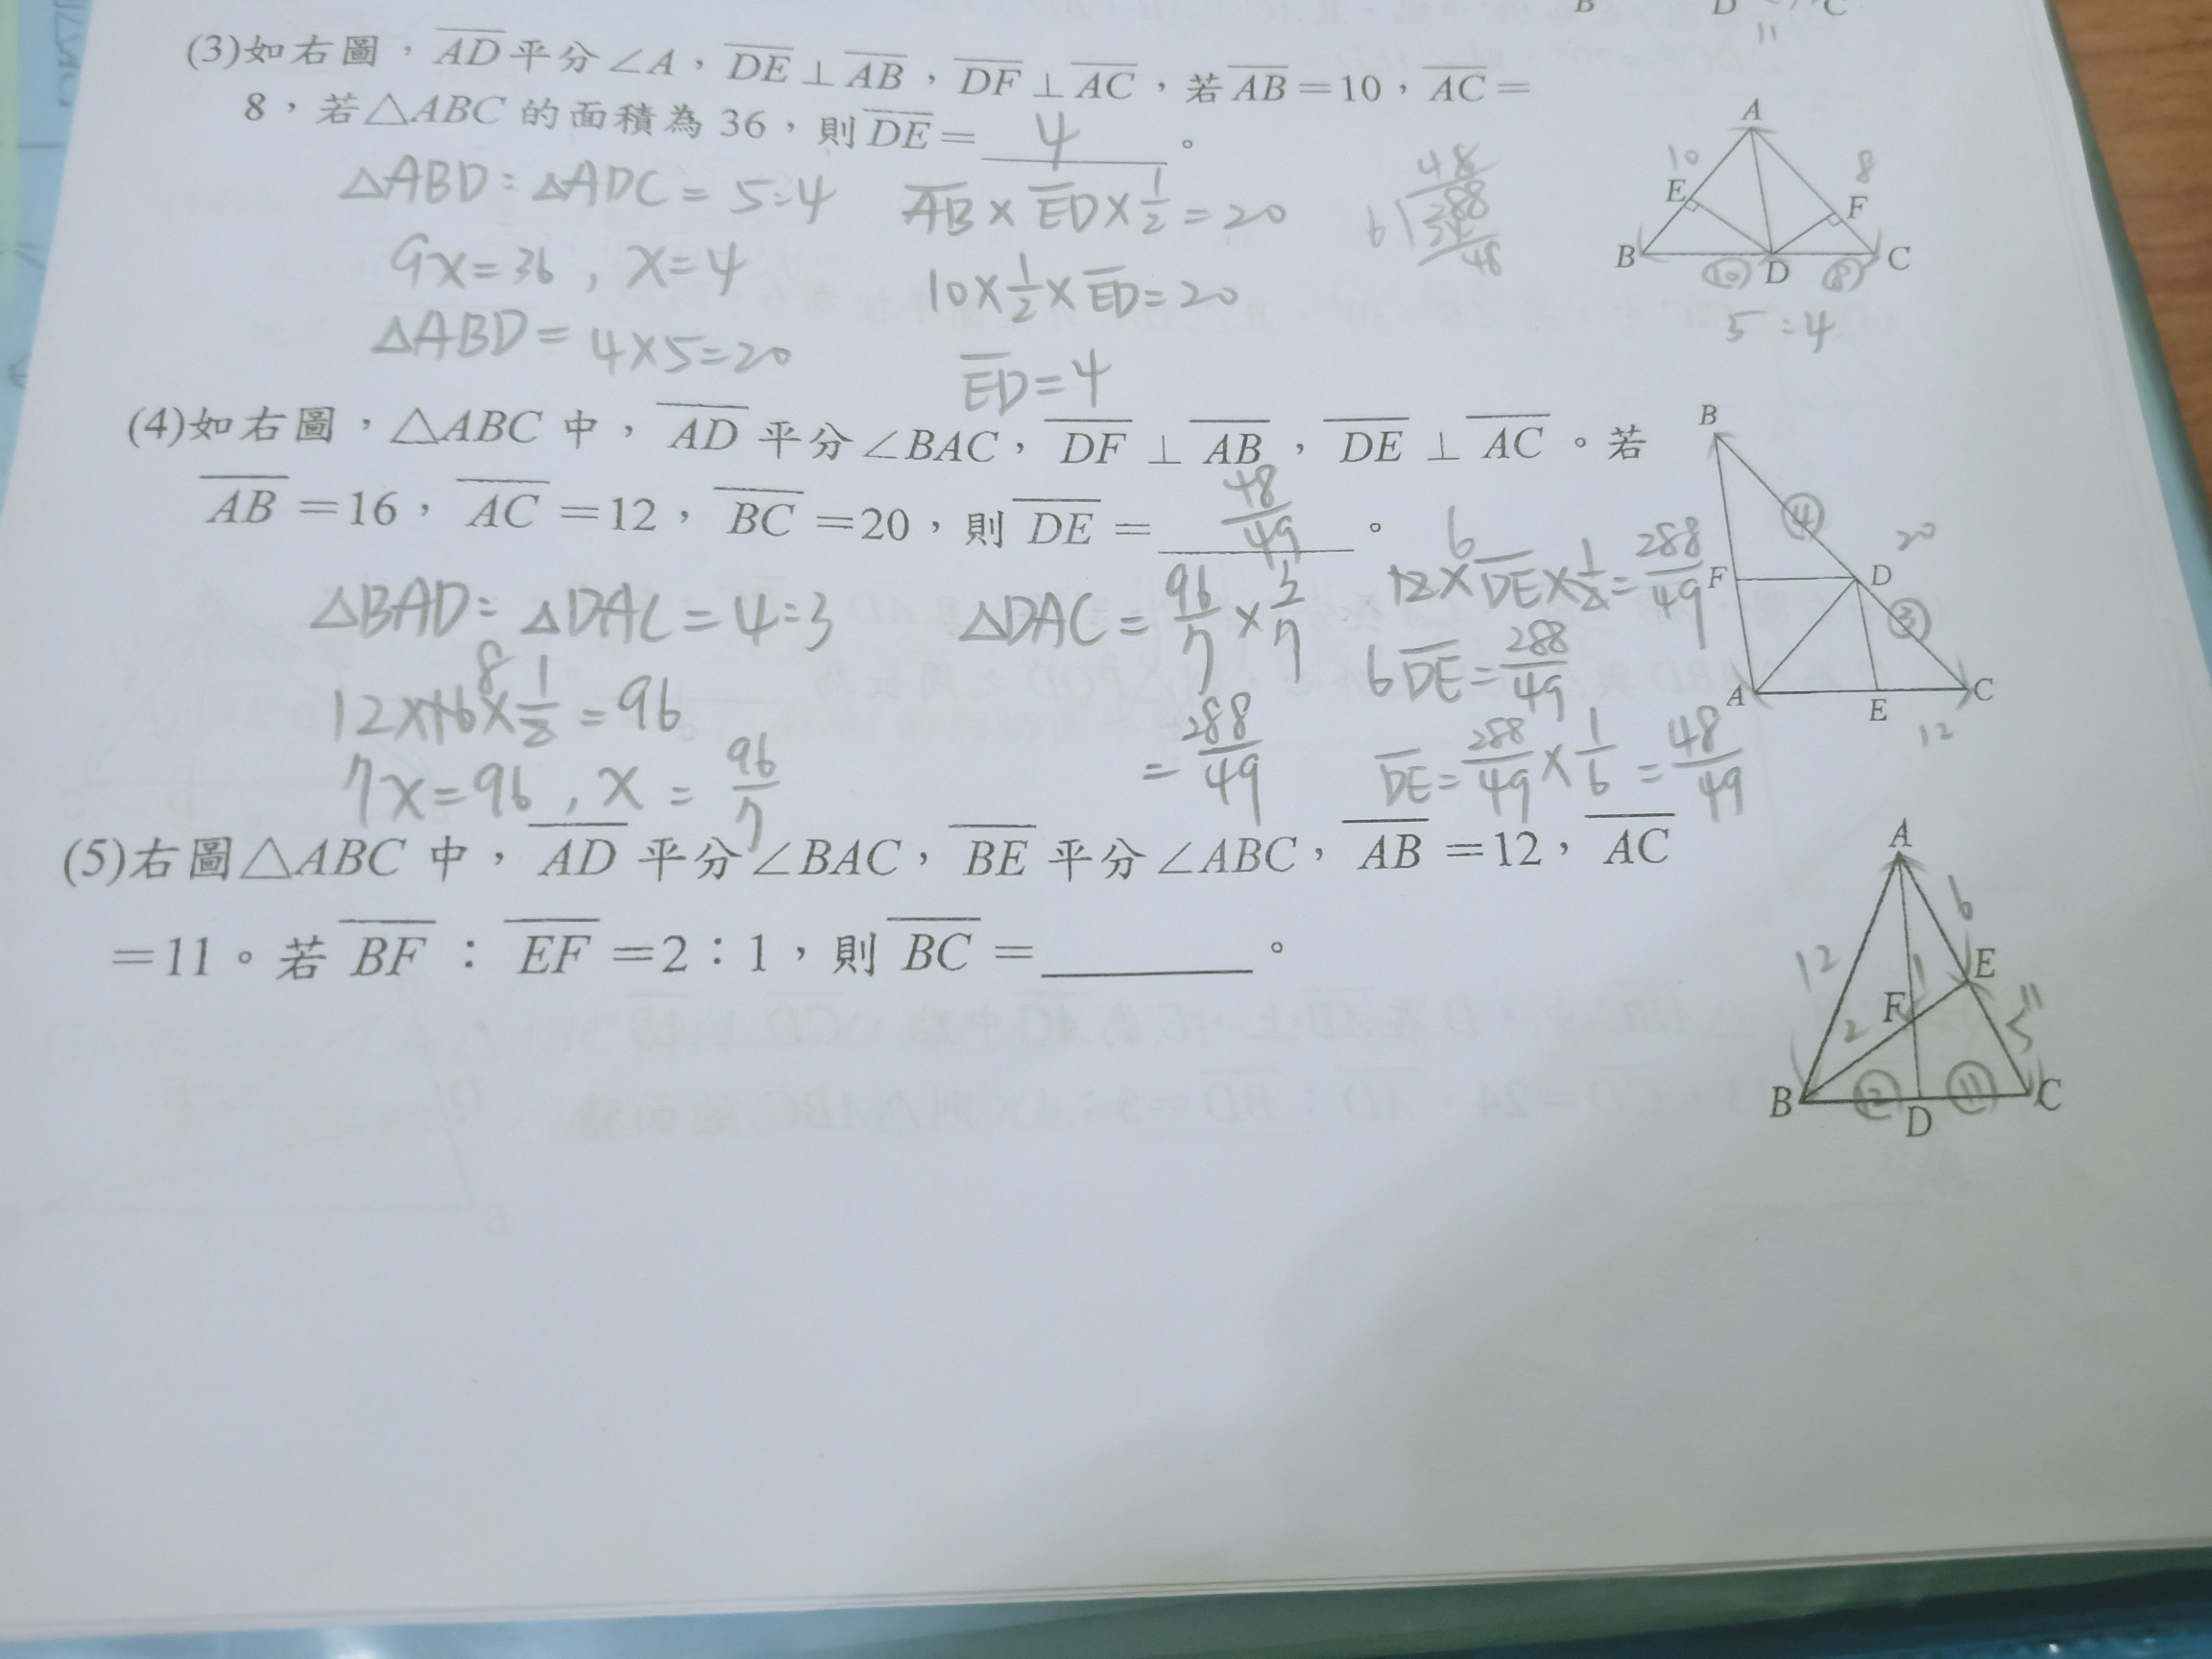 B D C
11
(3)如右圖，AD平分∠A，DE⊥AB，DF⊥AC，若AB=10，AC=
8，若△ABC的面積為36，則DE=4。
△ABD:△ADC=5:4
9x=36，x=4
△ABD=4×5=20
AB×ED×1/2=20
10×1/2×ED=20
ED=4
48
6 288
48
A
10
8
E
F
B
10
D
8
C
5:4
(4)如右圖，△ABC中，AD平分∠BAC，DF⊥AB，DE⊥AC。若
AB=16，AC=12，BC=20，則DE=48/49。
△BAD:△DAC=4:3
8
12×16×1/2=96
7x=96，x=96/7
△DAC=96/7×3/7
=288/49
6
12×DE×1/2=288/49
6DE=288/49
DE=288/49×1/6=48/49
B
4
20
F
D
3
A
E
C
12
(5)右圖△ABC中，AD平分∠BAC，BE平分∠ABC，AB=12，AC
=11。若BF：EF=2：1，則BC=。
A
6
12
E
1
F
11
2
5
B
12
D
11
C